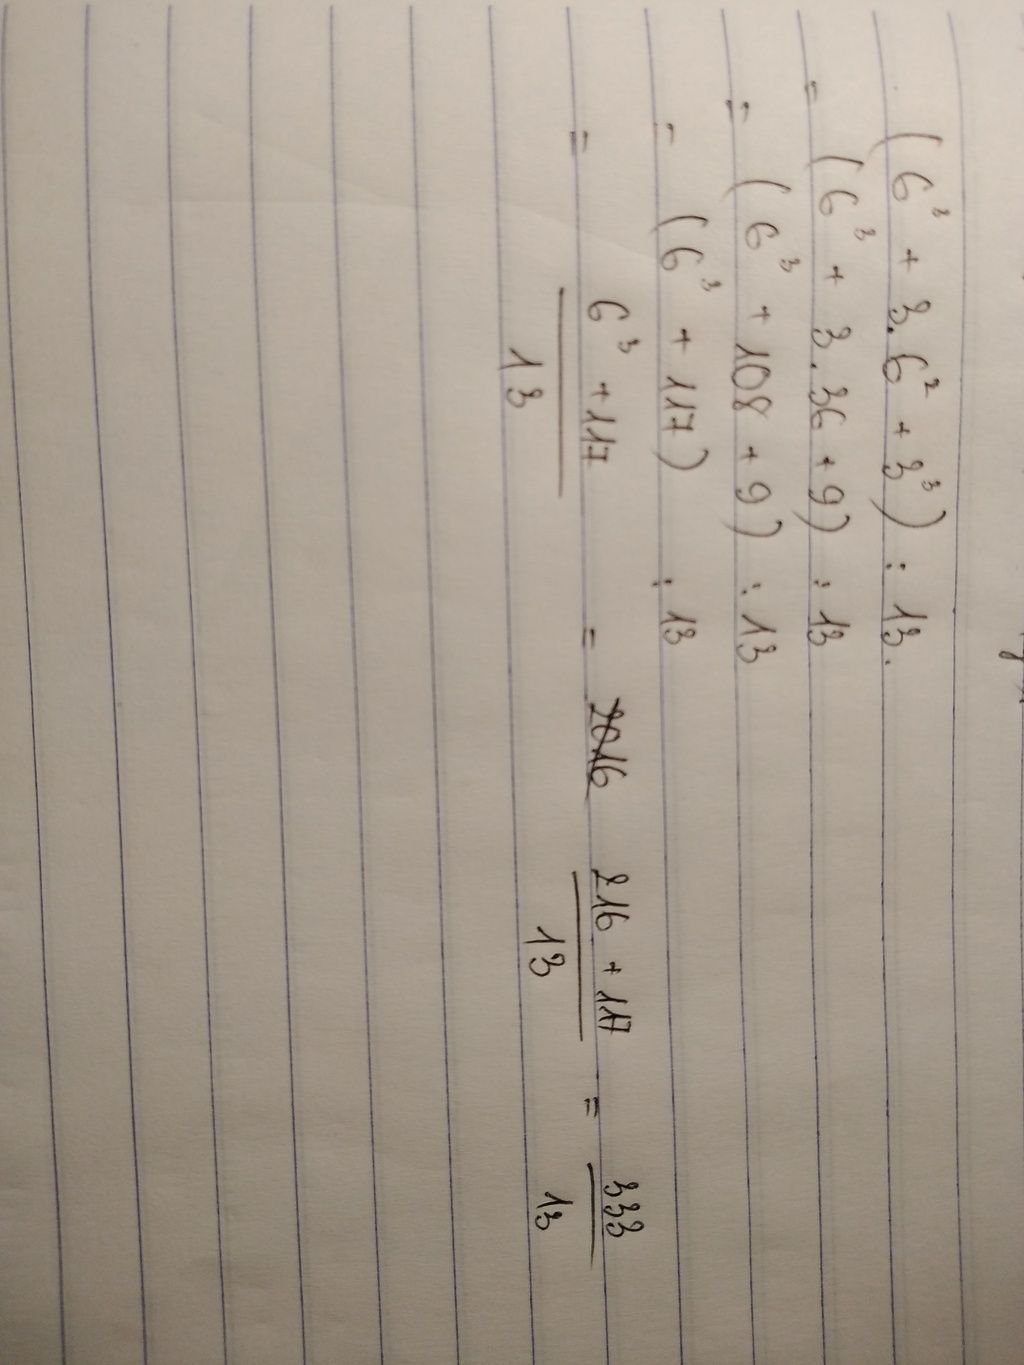 (6³ + 3.6² + 3³) : 13.
= (6³ + 3.36 + 9) : 13
= (6³ + 108 + 9) : 13
= (6³ + 117) : 13
= 6³ + 117 / 13 = 2016 216 + 117 / 13 = 333 / 13